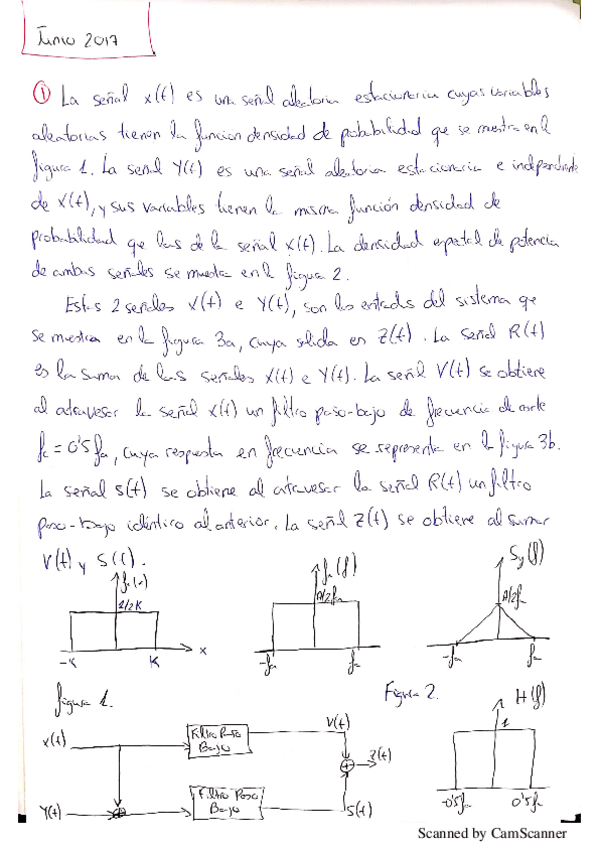 Junio 2017
① La señal x(t) es una señal aleatoria estacionaria cuyas variables
aleatorias tienen la función densidad de probabilidad que se muestra en l
figura 1. La señal Y(t) es una señal aleatoria estacionaria e independiente
de X(t), y sus variables tienen l misma función densidad de
probabilidad que las de la señal x(t). La densidad espectral de potencia
de ambas señales se muestra en l figura 2.
Estas 2 señales X(t) e Y(t), son las entradas del sistema que
se muestra en l figura 3a, cuya salida en Z(t). La señal R(t)
es la suma de las señales X(t) e Y(t). La señl V(t) se obtiene
al atravesar la señal x(t) un filtro paso-bajo de frecuencia de corte
fc = 0'5fa, cuya respuesta en frecuencia se representa en l figura 3b.
La señal s(t) se obtiene al atravesar la señal R(t) un filtro
paso-bajo idéntico al anterior. La señl Z(t) se obtiene al sumar
V(t) y S(t).
1/2K
-K K x
A/2fa
-fa fa
Sy(f)
A/2fa
-fa fa
figura 1.
Figura 2.
H(f)
1
-0'5fa 0'5fa
x(t)
Filtro Paso
Bajo
V(t)
Z(t)
Y(t)
Filtro Paso
Bajo
S(t)
Scanned by CamScanner